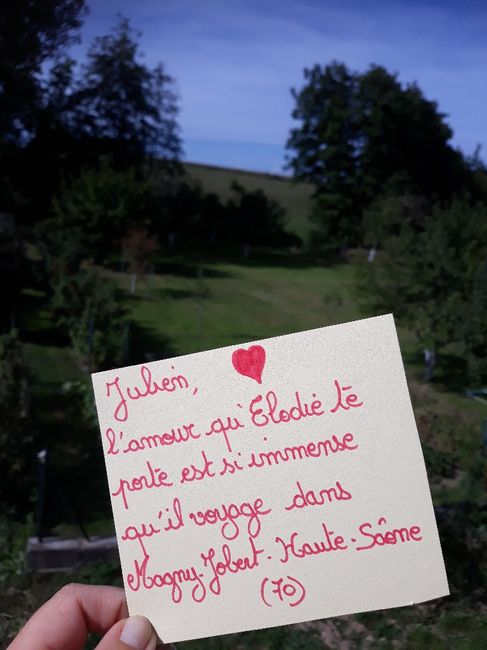 Julien,
l'amour qu'Elodie te
porte est si immense
qu'il voyage dans
Magny-Jobert-Haute-Saône
(70)